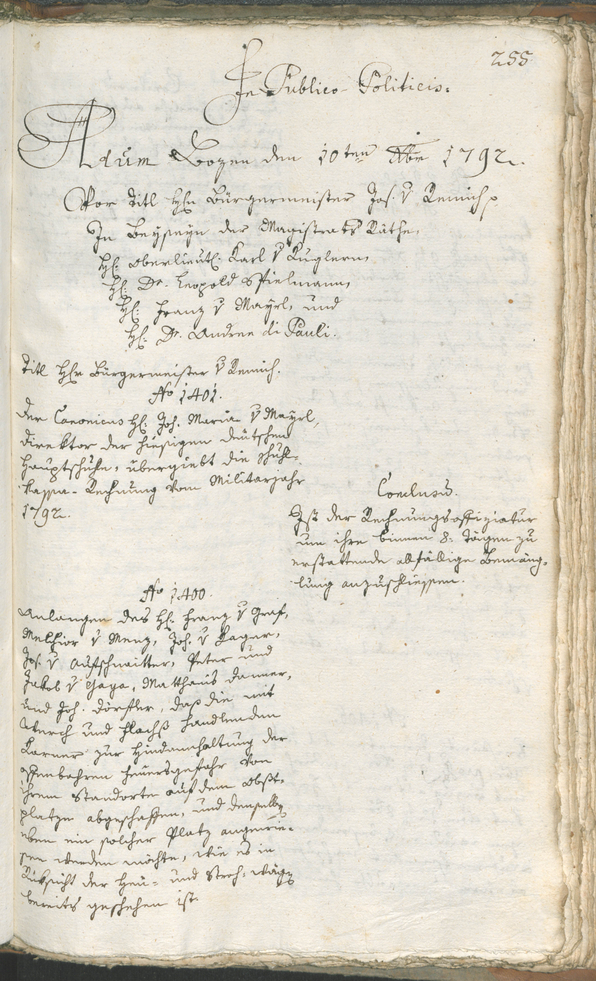 255
In Publico-Politicis.
Actum Bozen den 10ten Xbr 1792.
Vor Titl Hln Bürgermeister Jos. v Remich p
In Beyseyn der Magistrats Räthe,
Hl. Oberlieut. Karl v Kuglern,
Hl. Dr. Leopold Spielmann,
Hl. Franz v Mayrl, und
Hl. Dr. Andree di Pauli.
Titl Hlr Bürgermeister v Remich.
No 1401.
Der Canonicus Hl. Joh. Maria v Mayrl,
Direktor der hiesigen deütschen
Hauptschule, übergiebt die Schul-
kassa-Rechnung vom Militarjahr
1792.
Conclusum.
Ist der Rechnungsoffiziatur
um ihre binnen 8. Tägen zu
erstattende allfällige Bemäng-
lung anzuschliessen.
No 1400.
Anlangen des Hl. Franz v Graf,
Melchior v Menz, Joh. v
Jos. v Aufschnaitter, Peter und
Jakob v Gaya, Matthäus
und Joh. Dörfler, daß die mit
Werch und Flachs handlenden
Karner zur Hindanhaltung der
offenbahren Feuersgefahr von
ihrem Standorte auf dem Obst-
platze abgeschaffen, und denselben
eben ein solcher Platz angewie-
sen werden möchte, wie es in
Rüksicht der Heu- und Stroh-wägen
bereits geschehen ist.